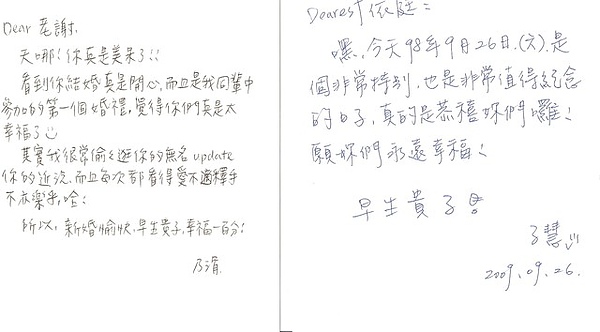 Dear 老謝,
天哪!你真是美呆了!!
看到你結婚真是開心,而且是我同輩中
參加的第一個婚禮,覺得你們真是太
幸福了
其實我很常偷々逛你的無名update
你的近況,而且每次都看得愛不適釋手
不亦樂乎,哈!
所以,新婚愉快,早生貴子,幸福一百分!
乃渭
Dearest 依庭:
嘿,今天98年9月26日,(六),是
個非常特別,也是非常值得紀念
的日子,真的是恭禧妳們囉!
願妳們永遠幸福!
早生貴子
子慧
2009.09.26.